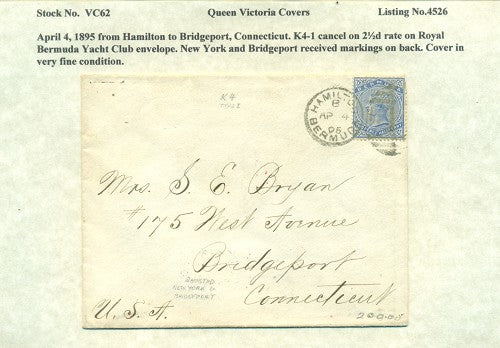 Stock No. VC62 Queen Victoria Covers Listing No.4526
April 4, 1895 from Hamilton to Bridgeport, Connecticut. K4-1 cancel on 2½d rate on Royal
Bermuda Yacht Club envelope. New York and Bridgeport received markings on back. Cover in
very fine condition.
K4
HAMILTO
B
AP 4
95
BERMUD
BERMUDA
Mrs. S. E. Bryan
#175 West Avenue
Bridgeport
Connecticut
U.S.A.
NEW YORK &
BRIDGEPORT
200.00